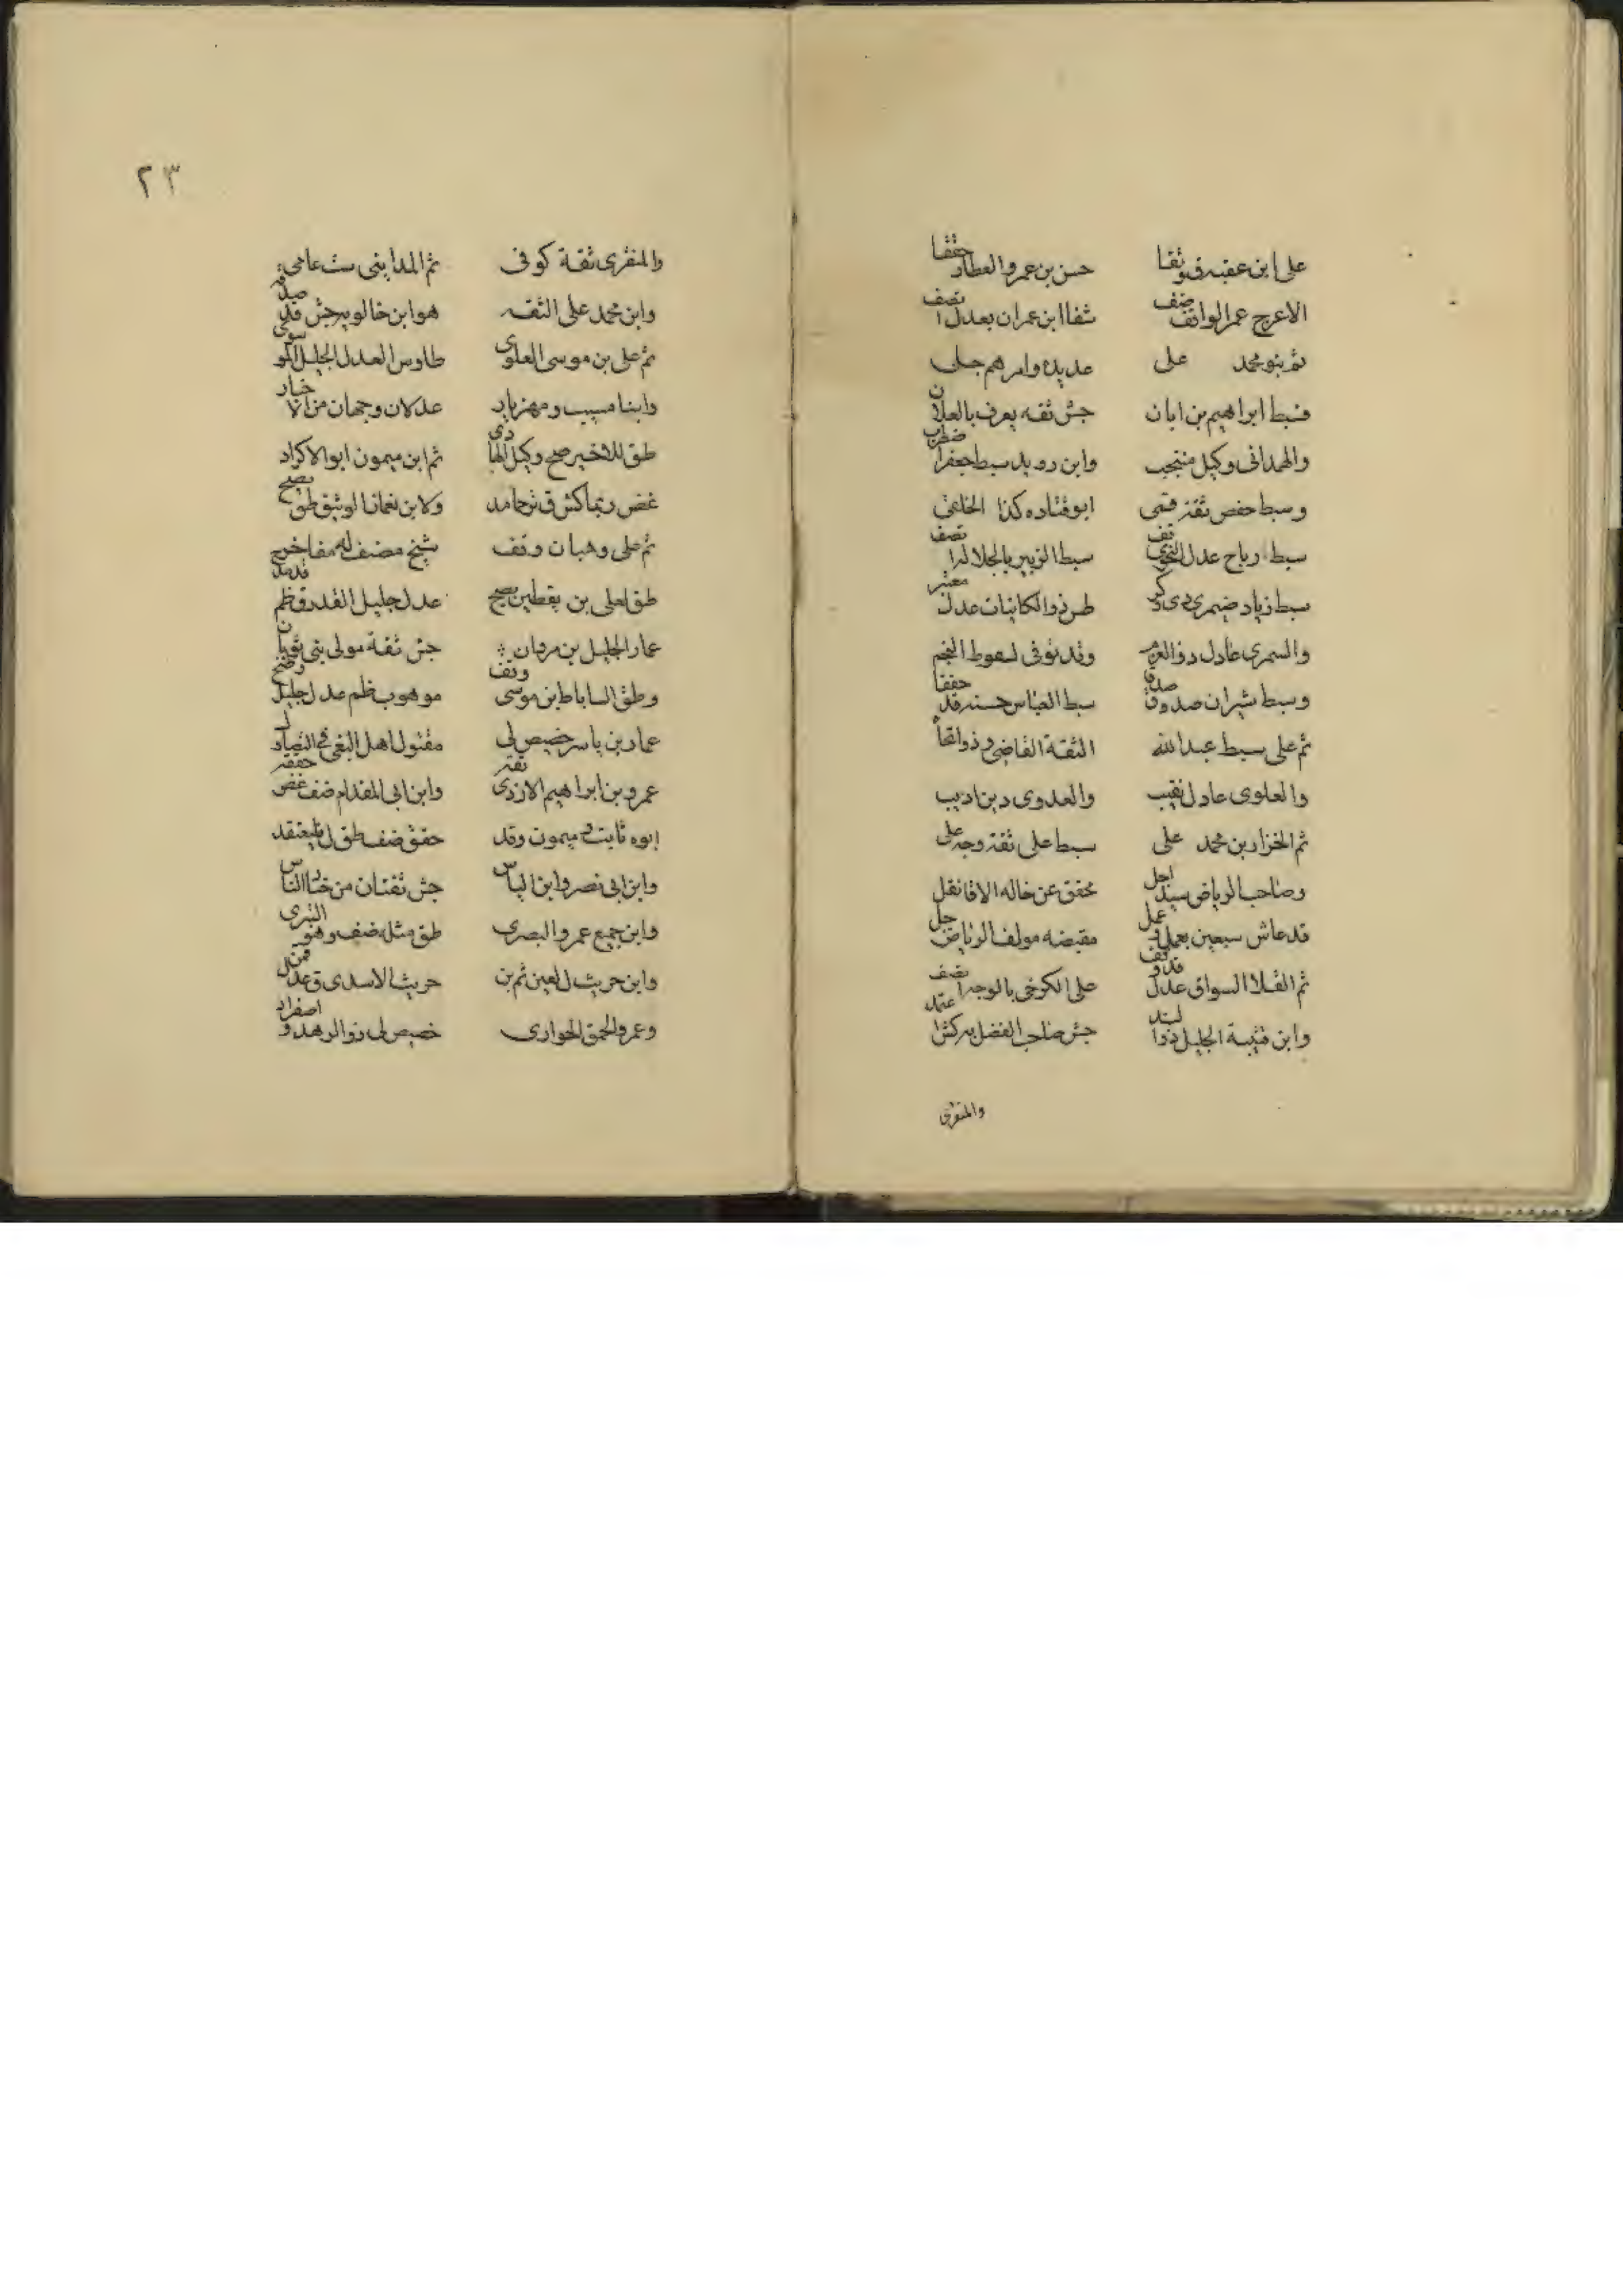 علی ابن عقبه ق وثقا حسن بن عمرو العطار حققا
الاعرج عمر الواقف ضف ثقا ابن عمران بعدل ا تصف
ثم بنو محمد علی عدیده وامرهم جلی
فسبط ابراهیم بن ابان جش ثقه یعرف بالعلان
والهمدانی وکیل منتجب وابن روید سبط جعفر اضطرب
وسبط حفص ثقة قمی ابو قتاده کذا الخلعی
سبط رباح عدل النحوی قف سبط الزبیر بالجلالة ا تصف
سبط زیاد ضیمری دی کر طرز ذو المکاتبات عدل معتبر
والسمری عادل ذو العزم وقد توفی لسقوط النجم
وسبط شیران صدوق صدقا سبط العباس حسنه قد حققا
ثم علی سبط عبدالله الثقة القاضی وذو
والعلوی عادل نقیب والعدوی دین ادیب
ثم الخزاز بن محمد علی سبط علی ثقة وجه علی
وصاحب الریاض سید اجل محقق عن خاله الاقا نقل
قد عاش سبعین بعلم وعمل مقبضه مولف الریاض جل
ثم القلا السواق عدل قد وقف علی الکرخی بالوجه ا تصف
وابن قتیبة الجلیل ذو ا لسند جش صاحب الفضل به کش اعتمد
والمنقری
٢٣
والمنقری ثقة کوفی ثم المداینی ست عامی
وابن محمد علی الثقه هو ابن خالویه جش قد صدقه
ثم علی بن موسی العلوی طاوس العدل الجلیل الموسوی
وابنا مسیب ومهزیار عدلان وجهان من الاخیار
طق للاخیر صح وکیل الهادی ثم ابن میمون ابو الاکراد
غض ربما کش ق ترحا مد ولابن نعمان الوثیق طق یصح
ثم علی وهبان وقف شیخ مصنف له
طق لعلی بن یقطین یصح عدل جلیل القدر ق ظم قد مدح
عمار الجلیل بن مروان جش ثقة مولی بنی ثوبان
وطق الساباط ابن موسی وثق موهوب ظم عدل جلیل وضح
عمار بن یاسر خصیص لی مقتول اهل البغی فی النضال
عمرو بن ابراهیم الازدی ثقه وابن ابی المقدام ضف غض حققه
ابوه ثابت میمون وقد حقق ضف طق ل یعتقد
وابن ابی نصر وابن الیاس جش ثقتان من خیار الناس
وابن جمیع عمرو البصری طق مثله ضف وهو البتری
وابن حریث ل لعین ثم بن حریث الاسدی ق عدل قمن
وعمرو الحمق الحواری خصیص لی ذو الزهد و اصفرار